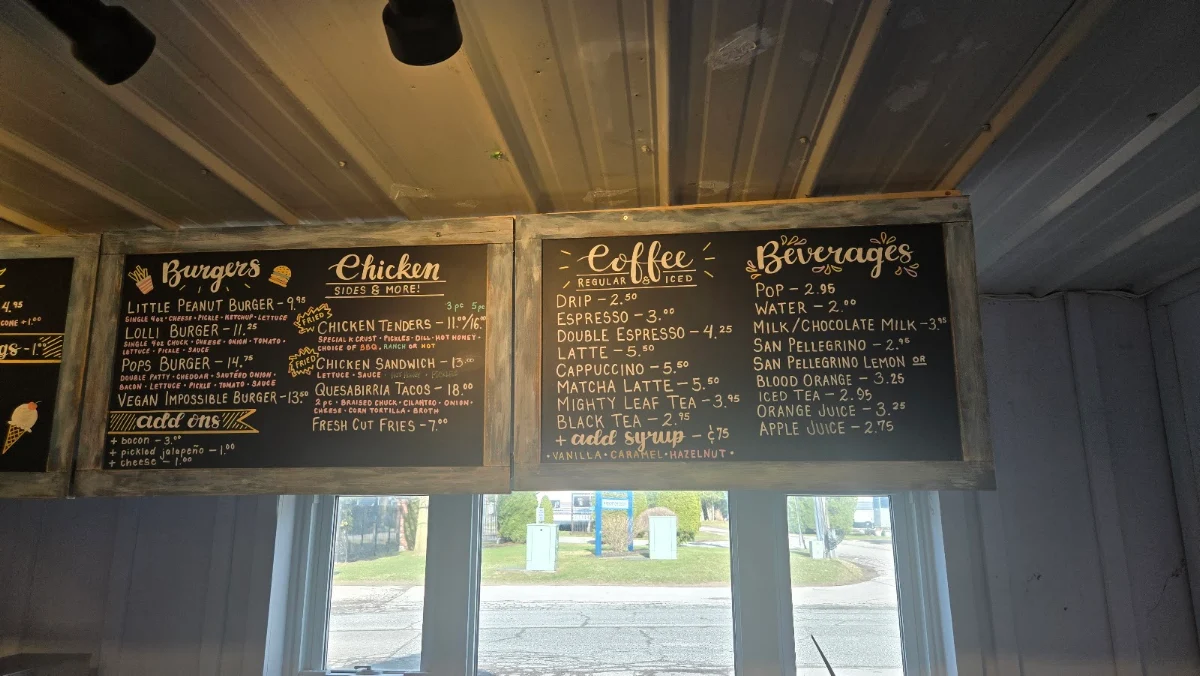 4.95
CONE +1.00
GS - 1.00
Burgers
LITTLE PEANUT BURGER - 9.95
SINGLE 4OZ • CHEESE • PICKLE • KETCHUP • LETTUCE
LOLLI BURGER - 11.25
SINGLE 4OZ CHUCK • CHEESE • ONION • TOMATO •
LETTUCE • PICKLE • SAUCE
POPS BURGER - 14.75
DOUBLE PATTY • CHEDDAR • SAUTÉED ONION •
BACON • LETTUCE • PICKLE • TOMATO • SAUCE
VEGAN IMPOSSIBLE BURGER - 13.50
add ons
+ bacon - 3.00
+ pickled jalapeño - 1.00
+ cheese - 1.00
Chicken
SIDES & MORE!
3 pc 5 pc
FRIED CHICKEN TENDERS - 11.00/16.00
SPECIAL K CRUST • PICKLES • DILL • HOT HONEY •
CHOICE OF BBQ, RANCH OR HOT
FRIED CHICKEN SANDWICH - 13.00
LETTUCE • SAUCE
QUESABIRRIA TACOS - 18.00
2 pc • BRAISED CHUCK • CILANTRO • ONION •
CHEESE • CORN TORTILLA • BROTH
FRESH CUT FRIES - 7.00
Coffee
REGULAR & ICED
DRIP - 2.50
ESPRESSO - 3.00
DOUBLE ESPRESSO - 4.25
LATTE - 5.50
CAPPUCCINO - 5.50
MATCHA LATTE - 5.50
MIGHTY LEAF TEA - 3.95
BLACK TEA - 2.95
+ add syrup - ¢75
• VANILLA • CARAMEL • HAZELNUT •
Beverages
POP - 2.95
WATER - 2.00
MILK/CHOCOLATE MILK - 3.95
SAN PELLEGRINO - 2.95
SAN PELLEGRINO LEMON OR
BLOOD ORANGE - 3.25
ICED TEA - 2.95
ORANGE JUICE - 3.25
APPLE JUICE - 2.75